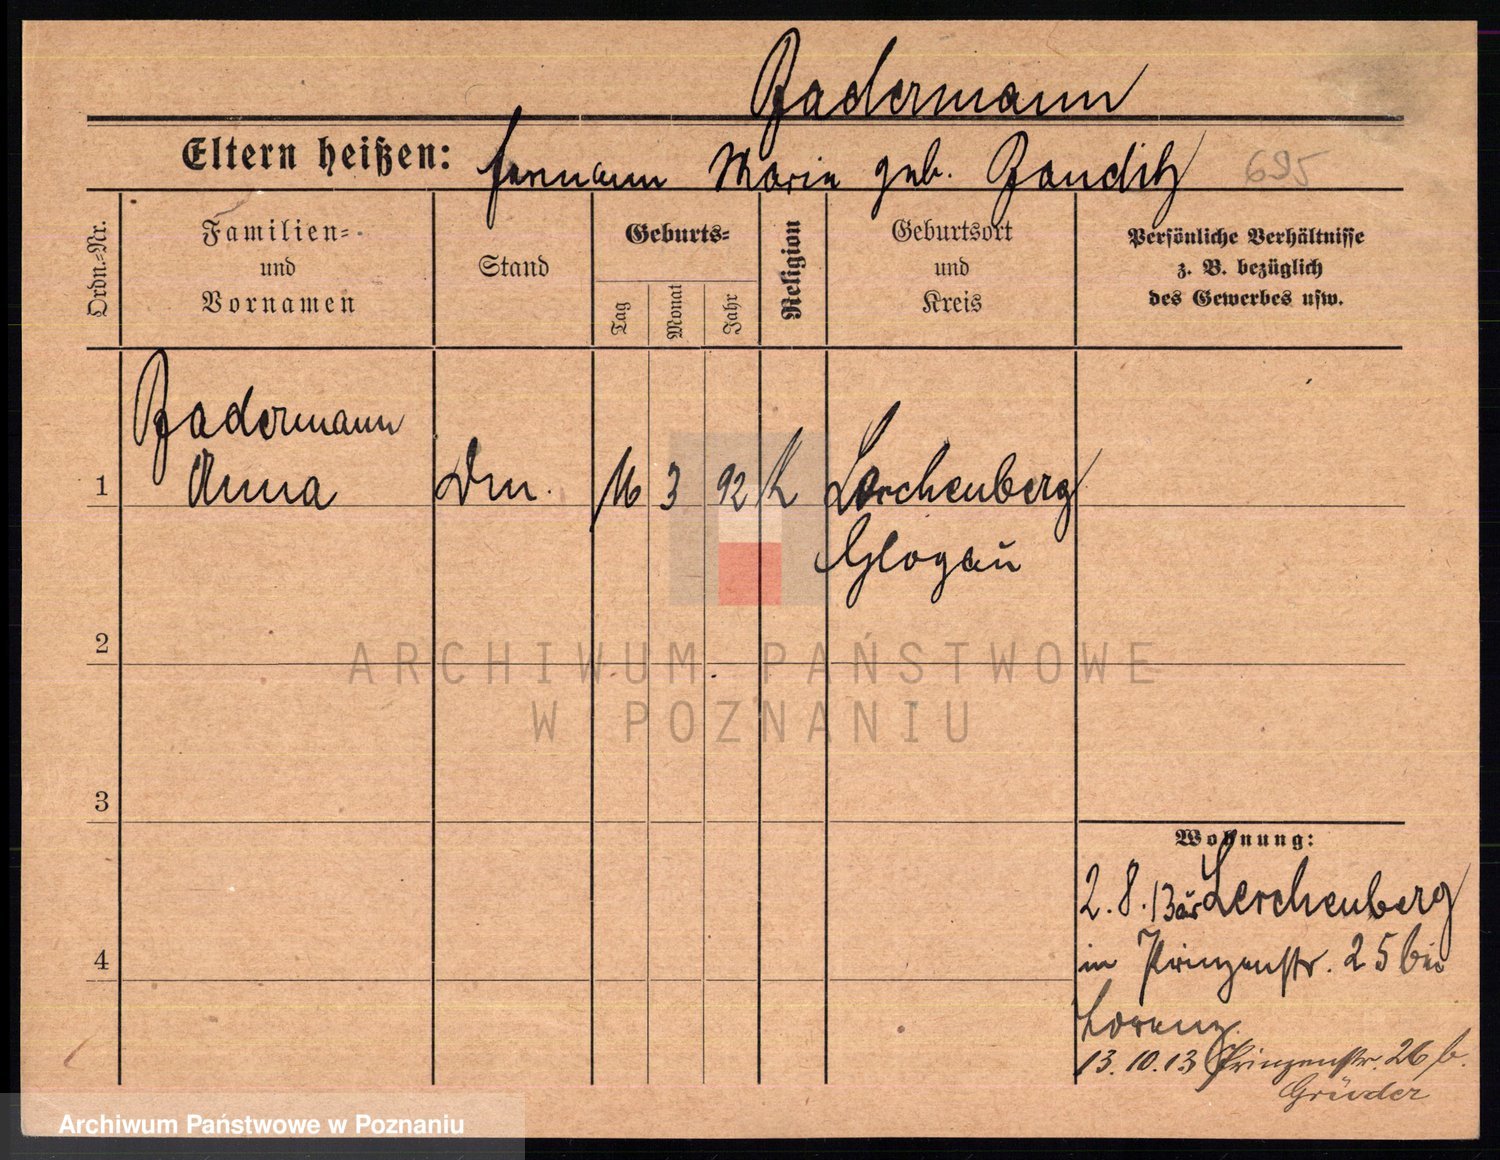 Badermann
Eltern heißen: Hermann Marie geb. Bauditz 695
Ordn.-Nr.
Familien- und Vornamen
Stand
Geburts-
Tag
Monat
Jahr
Religion
Geburtsort und Kreis
Persönliche Verhältnisse
z. B. bezüglich
des Gewerbes usw.
Badermann
1 Anna Dm. 16 3 92 K Lerchenberg
Glogau
2
ARCHIWUM PAŃSTWOWE
W POZNANIU
3
Wohnung:
2. 8. 13 aus Lerchenberg
4 in Prinzenstr. 25 bei
Lorenz
13. 10. 13 Prinzenstr. 26 b.
Grüder
Archiwum Państwowe w Poznaniu